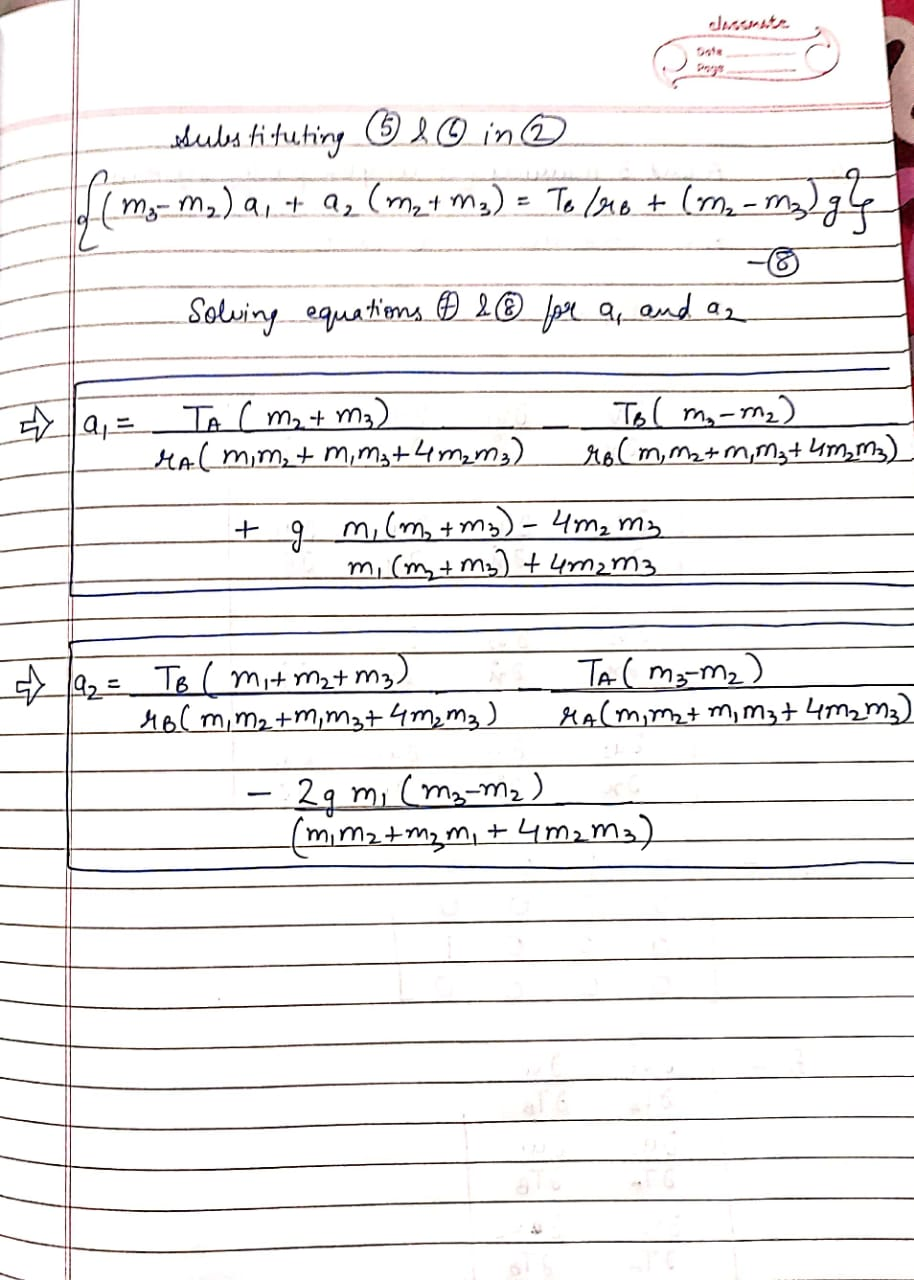 classmate
Date
Page
Substituting ⑤ & ⑥ in ②
{(m₃-m₂) a₁ + a₂ (m₂+m₃) = T_B/r_B + (m₂-m₃)g}
-⑧
Solving equations ⑦ & ⑧ for a₁ and a₂
⇒ a₁ = T_A (m₂+m₃) / r_A(m₁m₂+m₁m₃+4m₂m₃) - T_B(m₃-m₂) / r_B(m₁m₂+m₁m₃+4m₂m₃)
+ g m₁(m₂+m₃) - 4m₂m₃ / m₁(m₂+m₃) + 4m₂m₃
⇒ a₂ = T_B (m₁+m₂+m₃) / r_B(m₁m₂+m₁m₃+4m₂m₃) - T_A(m₃-m₂) / r_A(m₁m₂+m₁m₃+4m₂m₃)
- 2g m₁(m₃-m₂) / (m₁m₂+m₃m₁+4m₂m₃)